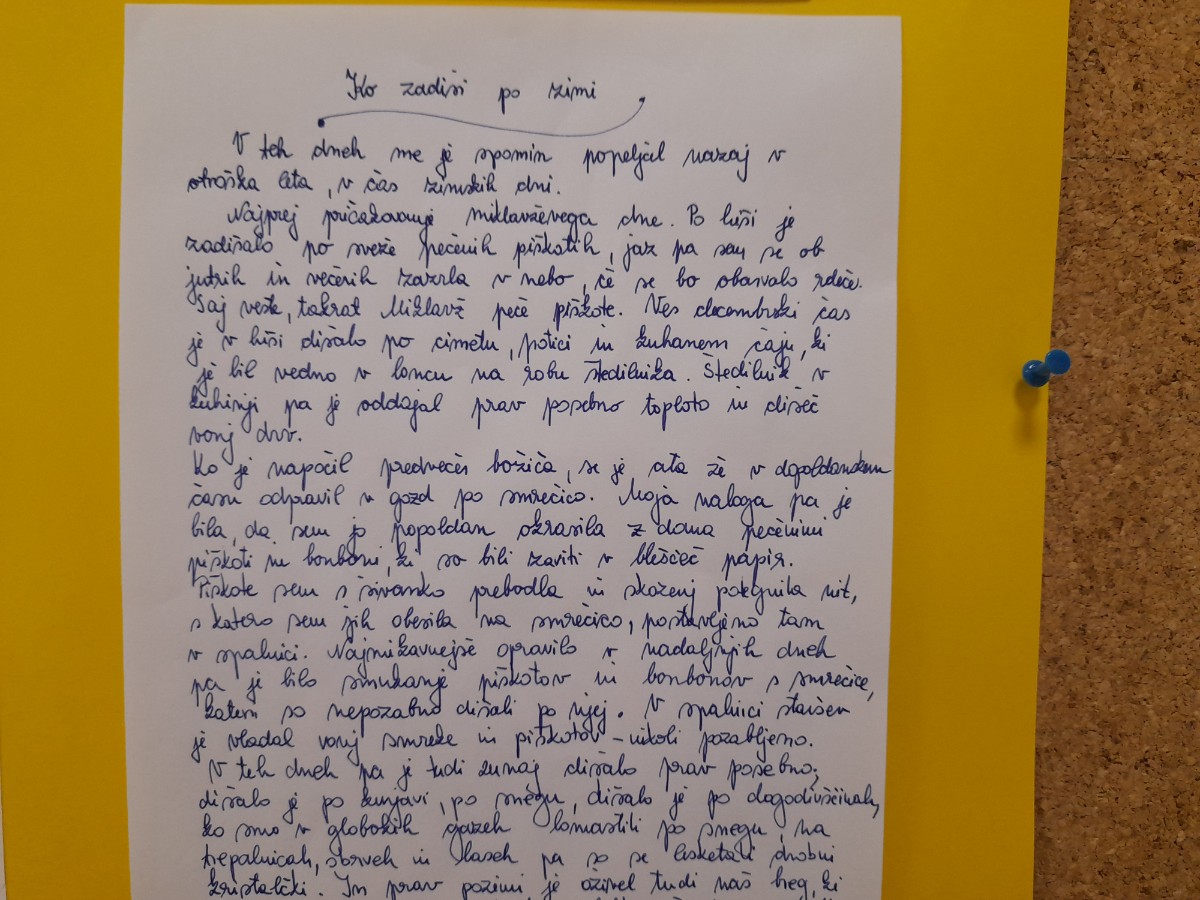 Ko zadiši po zimi
V teh dneh me je spomin popeljal nazaj v
otroška leta, v čas zimskih dni.
Najprej pričakovanje miklavževega dne. Po hiši je
zadišalo po sveže pečenih piškotih, jaz pa sem se ob
jutrih in večerih zazrla v nebo, če se bo obarvalo rdeče.
Saj veste, takrat Miklavž peče piškote. Ves decembrski čas
je v hiši dišalo po cimetu, potici in kuhanem čaju, ki
je bil vedno v loncu na robu štedilnika. Štedilnik v
kuhinji pa je oddajal prav posebno toploto in dišeč
vonj drv.
Ko je napočil predvečer božiča, se je ata že v dopoldanskem
času odpravil v gozd po smrečico. Moja naloga pa je
bila, da sem jo popoldan okrasila z doma pečenimi
piškoti in bonboni, ki so bili zaviti v bleščeč papir.
Piškote sem s šivanko prebodla in skoznj potegnila nit,
s katero sem jih obesila na smrečico, postavljeno tam
v spalnici. Najmikavnejše opravilo v nadaljnjih dneh
pa je bilo smukanje piškotov in bonbonov s smrečice,
kateri so nepozabno dišali po njej. V spalnici staršev
je vladal vonj smreke in piškotov - nikoli pozabljeno.
V teh dneh pa je tudi zunaj dišalo prav posebno;
dišalo je po kunjavi, po snegu, dišalo je po dogodivščinah,
ko smo v globokih gazeh lomastili po snegu, na
trepalnicah, obrveh in laseh pa so se lesketali drobni
kristalčki. In prav pozimi je oživel tudi naš breg, ki